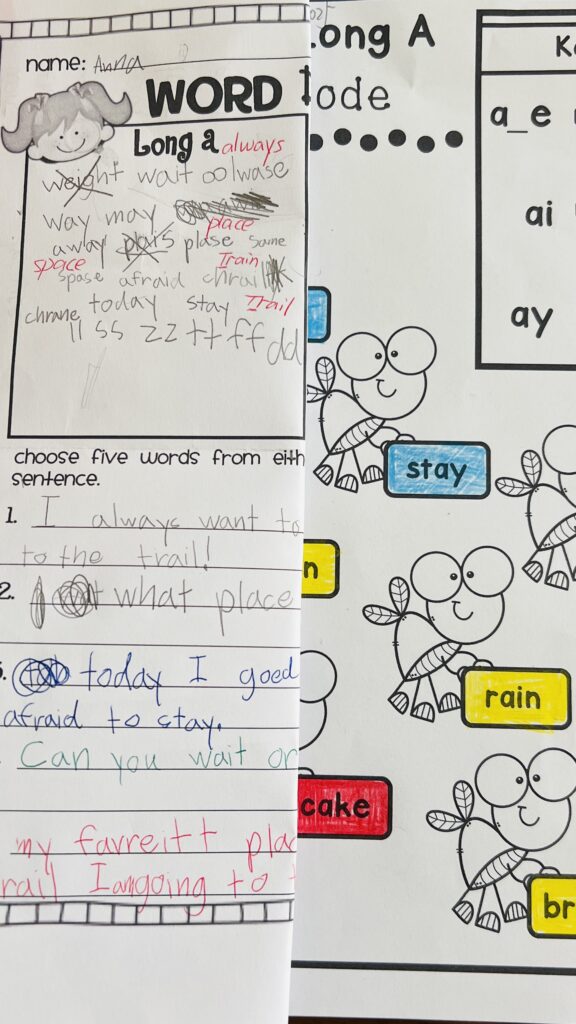 name: Anna
WORD
Long a always
weight wait oolwase
way may
place
away plars plase same
space Train
spase afraid chrai
today stay Trail
chrane
ll ss zz tt ff dd
choose five words from eith
sentence.
1. I always want to
to the trail!
2. what place
today I goed
afraid to stay.
Can you wait or
my favreitt plac
rail I am going to t
Long A
Code
K
a_e
ai
ay
stay
n
rain
cake
br